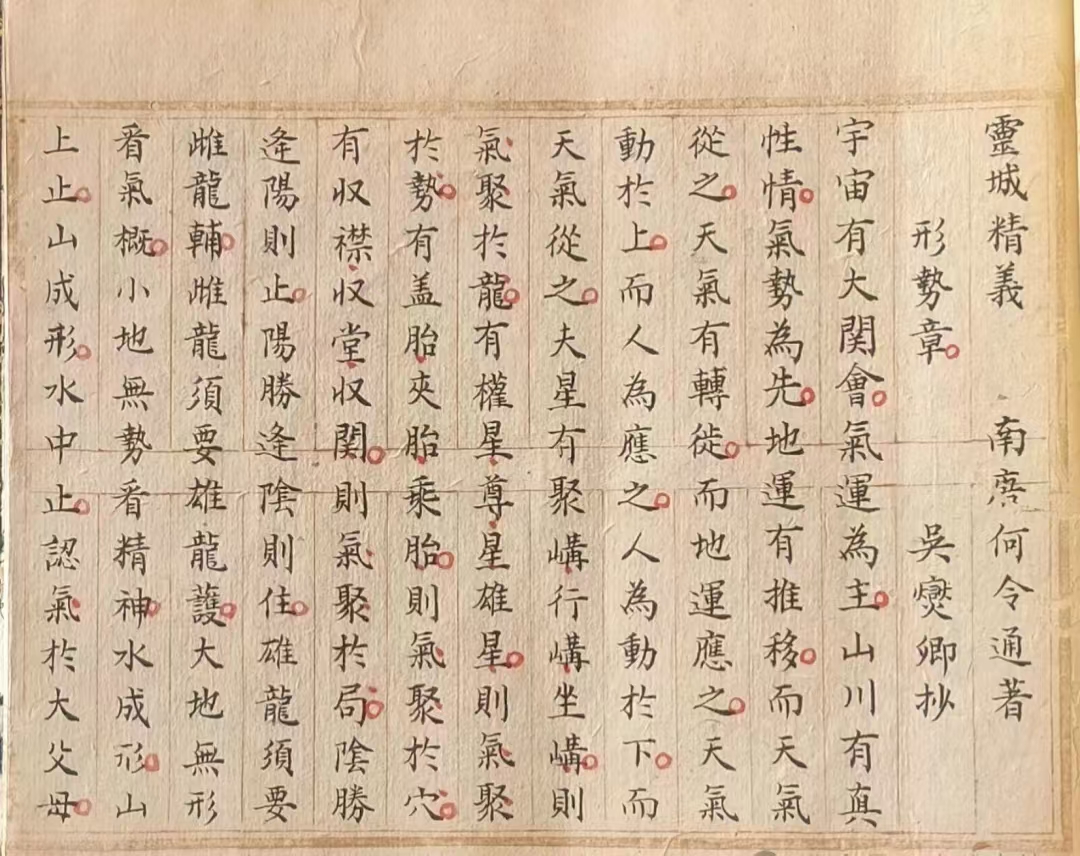 靈城精義 南唐何令通著
形勢章 吳爕卿抄
宇宙有大関會氣運為主山川有真
性情氣勢為先地運有推移而天氣
從之天氣有轉徙而地運應之天氣
動於上而人為應之人為動於下而
天氣從之夫星有聚嶹行嶹坐嶹則
氣聚於龍有權星尊星雄星則氣聚
於勢有盖胎夾胎乘胎則氣聚於穴
有収襟収堂収関則氣聚於局陰勝
逢陽則止陽勝逢陰則住雄龍須要
雌龍輔雌龍須要雄龍護大地無形
看氣概小地無勢看精神水成形山
上止山成形水中止認氣於大父母